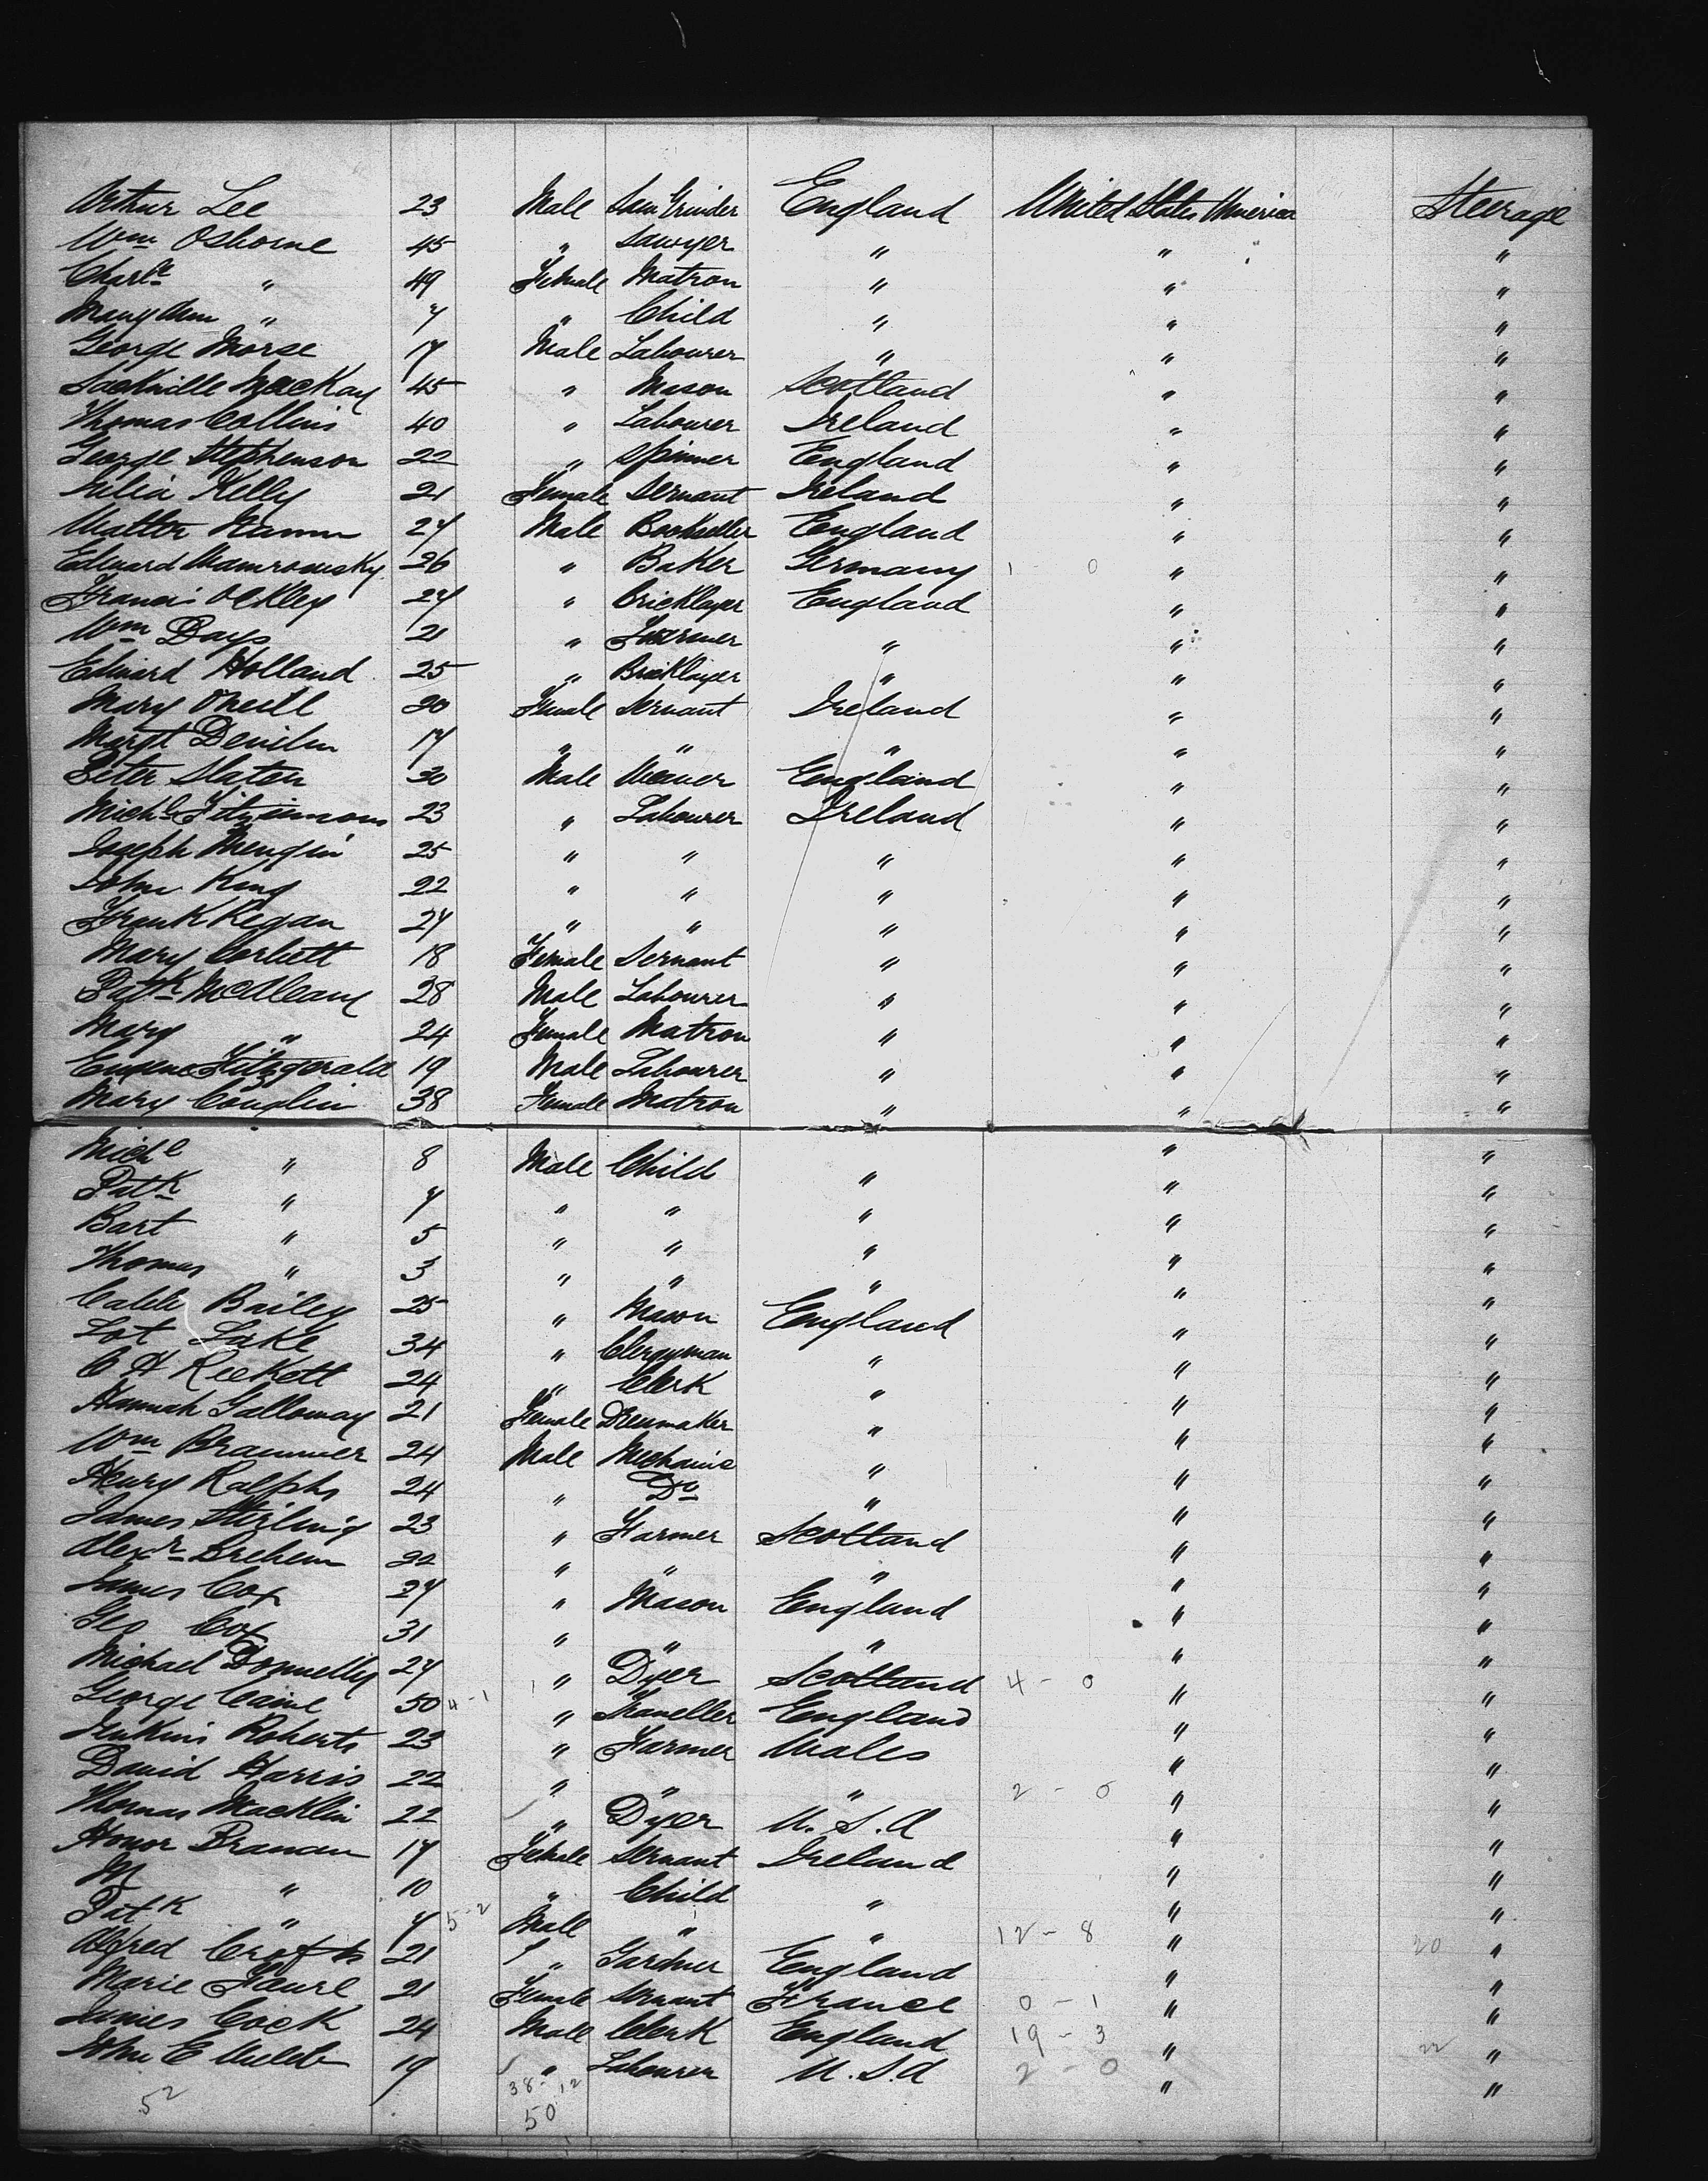 Arthur Lee 23 Male Saw Grinder England United States America Steerage
Wm Osborne 45 " Sawyer " " "
Charlte " 49 Female Matron " " "
Mary Ann " 7 " Child " " "
George Morse 17 Male Labourer " " "
Sackville MacKay 45 " Mason Scotland " "
Thomas Collins 40 " Labourer Ireland " "
George Stephenson 22 " Spinner England " "
Julia Kelly 21 Female Servant Ireland " "
Walter 27 Male Bookseller England " "
Edward 26 " Baker Germany 1 - 0 " "
Francis Ockley 27 " Bricklayer England " "
Wm Days 21 " Farmer " " "
Edward Holland 25 " Bricklayer " " "
Mary Oneill 20 Female Servant Ireland " "
Margt Devilin 17 " " " " "
Peter Slaten 30 Male Weaver England " "
Michl Fitzsimons 23 " Labourer Ireland " "
Joseph 25 " " " " "
John King 22 " " " " "
Frank Regan 27 " " " " "
Mary Corbett 18 Female Servant " " "
Patk McAleany 28 Male Labourer " " "
Mary " 24 Female Matron " " "
Eugene Fitzgerald 19 Male Labourer " " "
Mary Couglin 38 Female Matron " " "
Michl " 8 Male Child " " "
Patk " 7 " " " " "
Bart " 5 " " " " "
Thomas " 3 " " " " "
Caleb Bailey 25 " Mason England " "
Lot Lake 34 " Clergyman " " "
C H Reckett 24 " Clerk " " "
Hannah Galloway 21 Female Dressmaker " " "
Wm Brammer 24 Male Mechanic " " "
Henry Ralphs 24 " Do " " "
James Stirling 23 " Farmer Scotland " "
Alexdr Brehem 22 " " " " "
James Cox 27 " Mason England " "
Geo Cox 31 " " " " "
Michael Donnelly 27 " Dyer Scotland 4 - 0 " "
George Caine 50 4-1 " Traveller England " "
Jenkins Roberts 23 " Farmer Wales " "
David Harris 22 " " " 2 - 0 " "
Thomas Macklin 22 " Dyer U.S.A " "
Honor Branan 17 Female Servant Ireland " "
M " 10 " Child " " "
Patk " 7 5-2 Male " " 12 - 8 " "
Alfred Crofts 21 " Gardner England " 20 "
Marie Faure 21 Female Servant France 0 - 1 " "
James Cock 24 Male Clerk England 19 - 3 " "
John E 19 " Labourer U.S.A 2 - 0 " 22 "
52 38-12
50